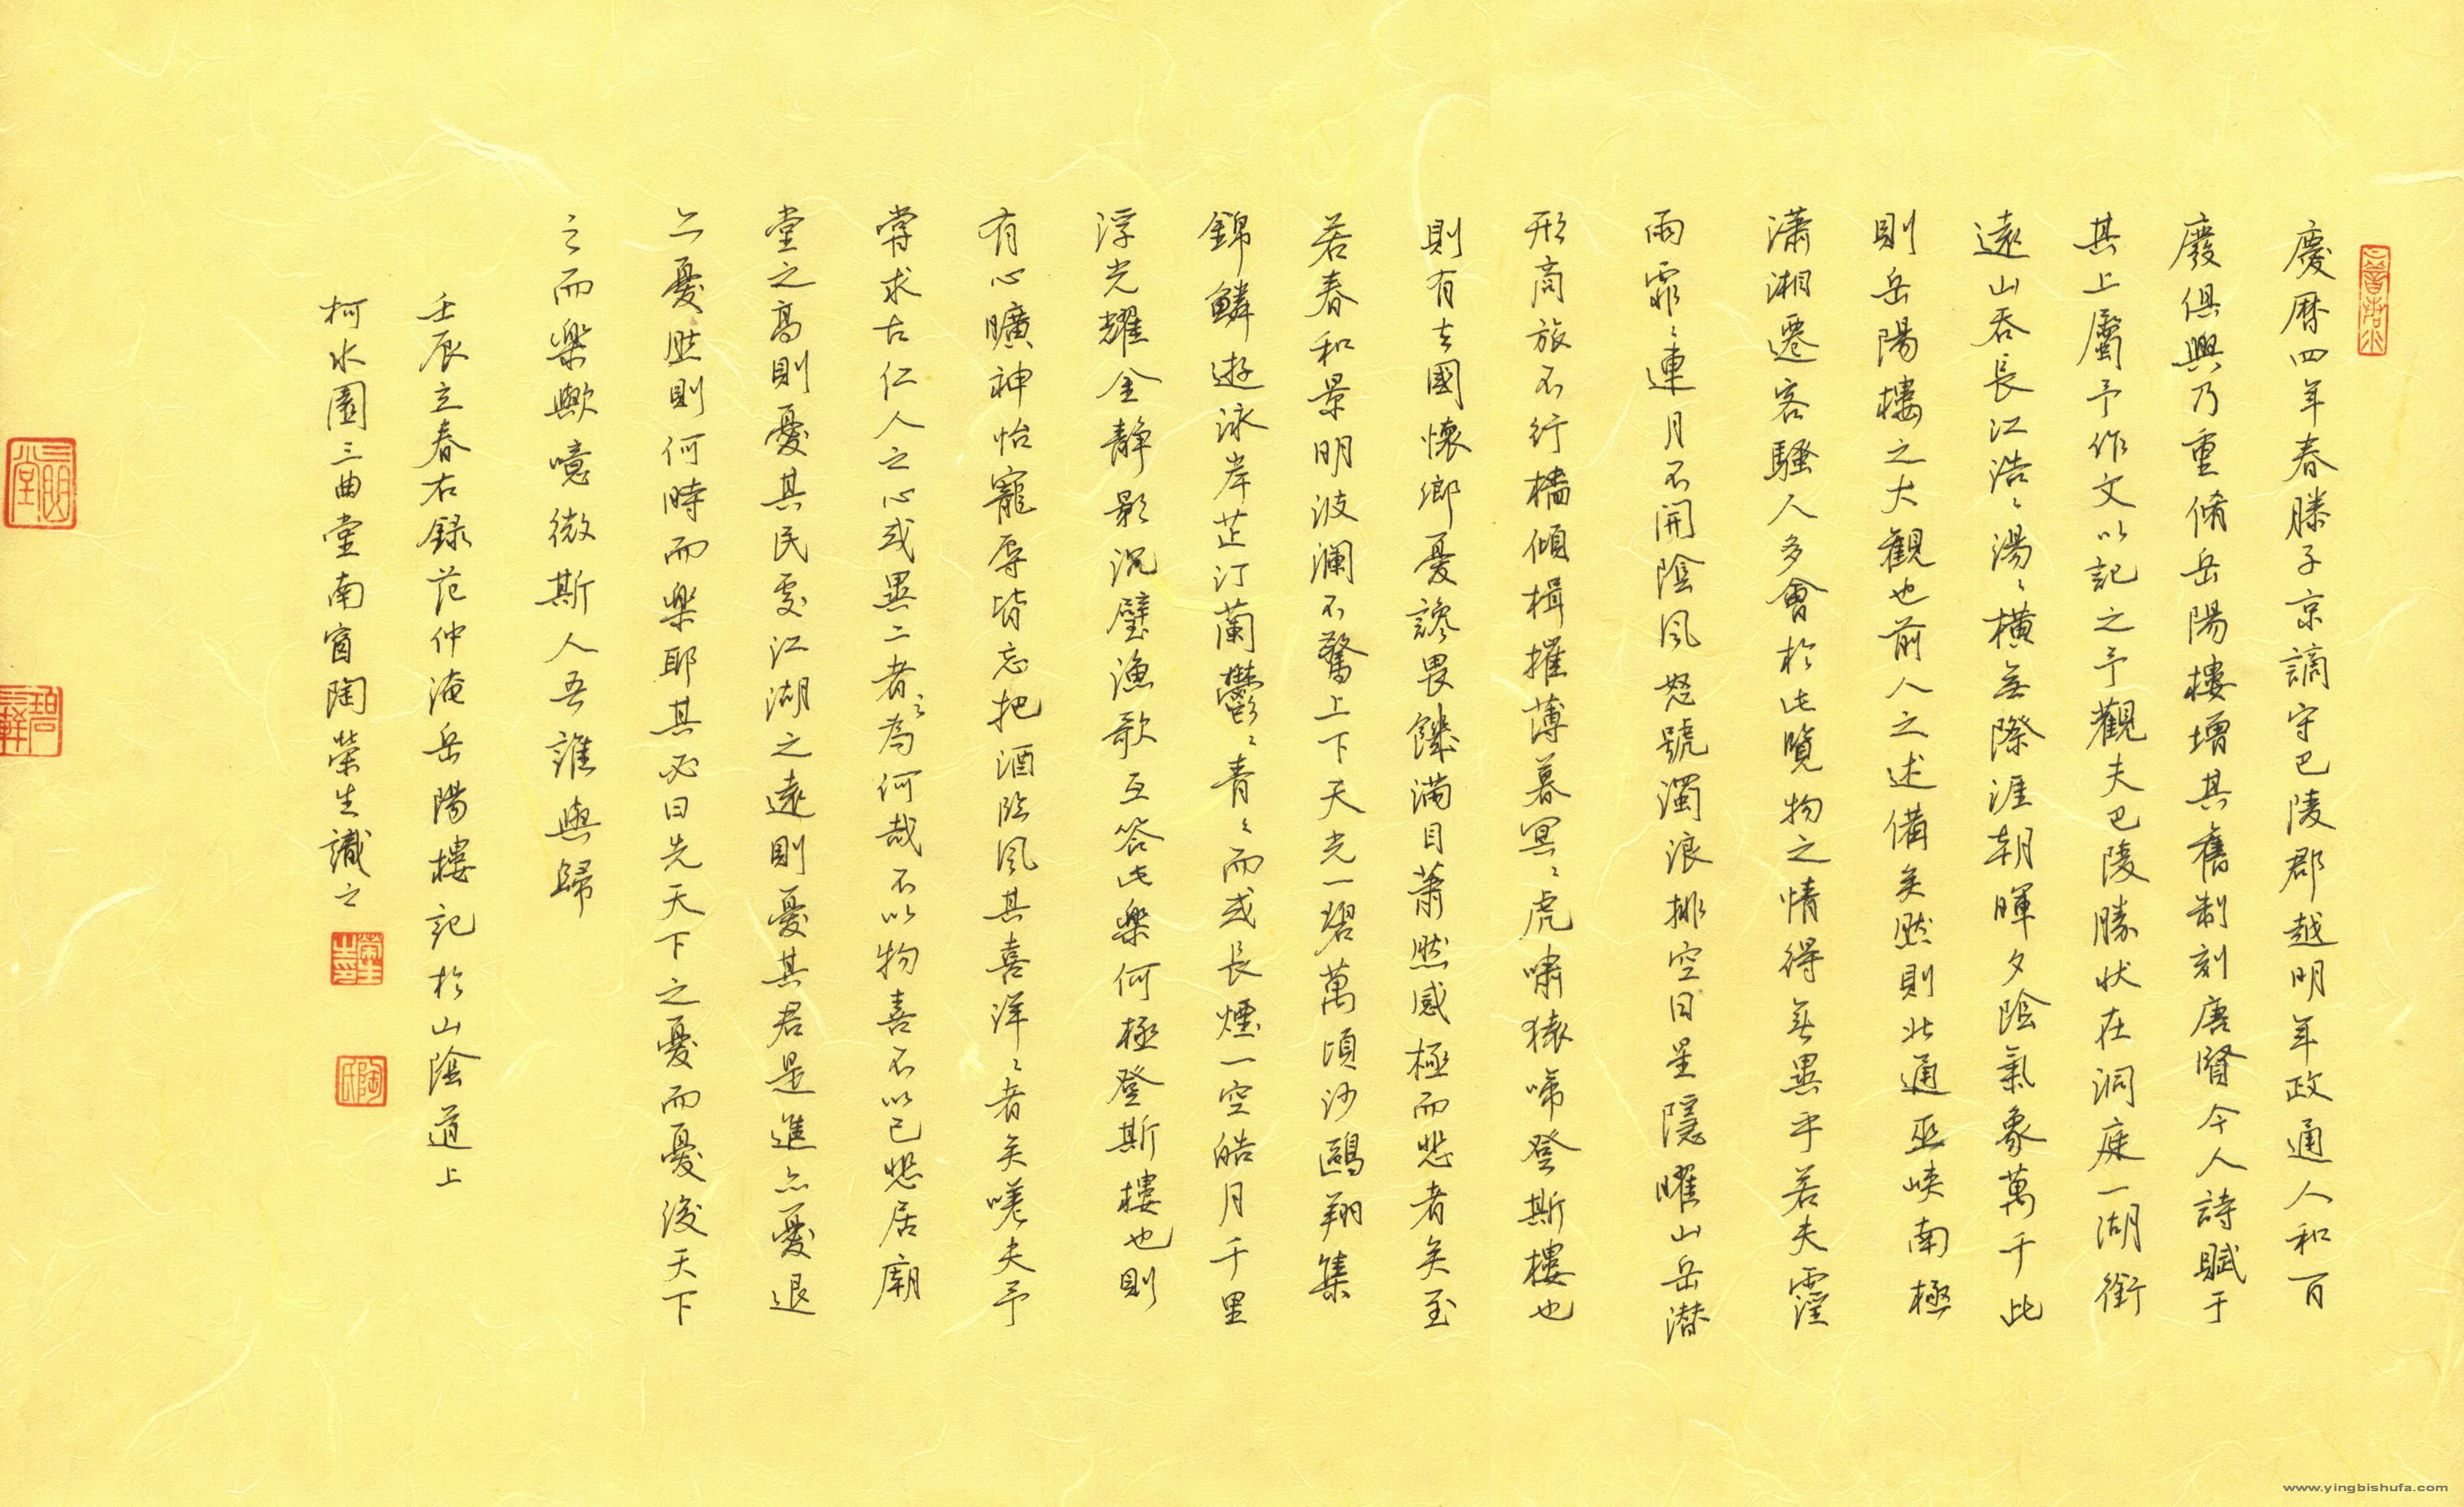 慶曆四年春滕子京謫守巴陵郡越明年政通人和百
廢俱興乃重脩岳陽樓增其舊制刻唐賢今人詩賦于
其上屬予作文以記之予觀夫巴陵勝狀在洞庭一湖銜
遠山吞長江浩〻湯〻橫無際涯朝暉夕陰氣象萬千此
則岳陽樓之大觀也前人之述備矣然則北通巫峽南極
瀟湘遷客騷人多會於此覽物之情得無異乎若夫霪
雨霏〻連月不開陰風怒號濁浪排空日星隱曜山岳潛
形商旅不行檣傾楫摧薄暮冥〻虎嘯猿啼登斯樓也
則有去國懷鄉憂讒畏譏滿目蕭然感極而悲者矣至
若春和景明波瀾不驚上下天光一碧萬頃沙鷗翔集
錦鱗遊泳岸芷汀蘭鬱〻青〻而或長煙一空皓月千里
浮光耀金靜影沉璧漁歌互答此樂何極登斯樓也則
有心曠神怡寵辱皆忘把酒臨風其喜洋〻者矣嗟夫予
嘗求古仁人之心或異二者之為何哉不以物喜不以己悲居廟
堂之高則憂其民處江湖之遠則憂其君是進亦憂退
亦憂然則何時而樂耶其必曰先天下之憂而憂後天下
之而樂歟噫微斯人吾誰與歸
壬辰立春右録范仲淹岳陽樓記於山陰道上
柯水園三曲堂南窗陶榮生識之
陶氏
www.yingbishufa.com